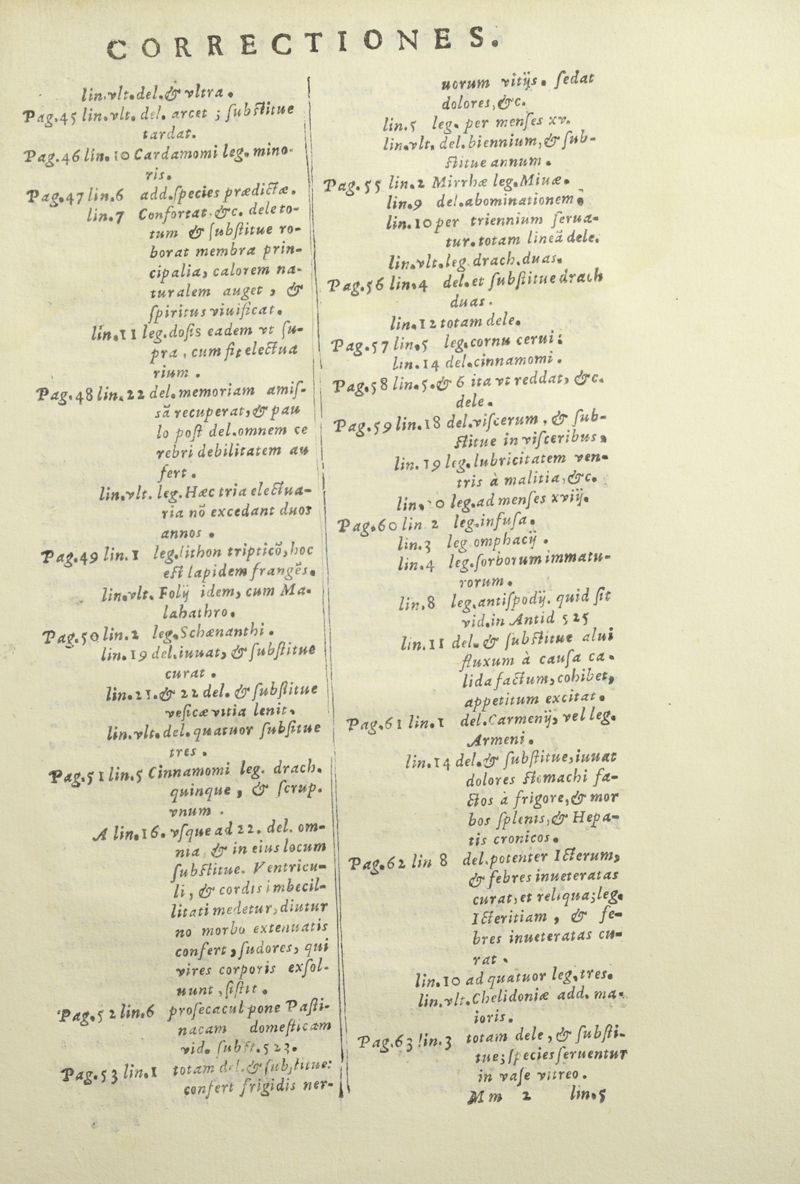 CORRECTIONES.
lin.vlt.del.& vltra.
Pag.45 lin.vlt. del. arcet ; ſubſtitue
tardat.
Pag.46 lin. 10 Cardamomi leg. mino-
ris.
Pag.47 lin.6 add.ſpecies prædictæ.
lin.7 Confortat.&c. dele to-
tum & ſubſtitue ro-
borat membra prin-
cipalia, calorem na-
turalem auget , &
ſpiritus viuificat.
lin.11 leg.doſis eadem vt ſu-
pra , cum ſit electua
rium .
Pag.48 lin.22 del.memoriam amiſ-
sã recuperat,& pau
lo poſt del.omnem ce
rebri debilitatem au
fert.
lin.vlt. leg. Hæc tria electua-
ria nõ excedant duos
annos .
Pag.49 lin. 1 leg.lithon tripticõ,hoc
eſt lapidem frangẽs.
lin.vlt. Folij idem, cum Ma-
labathro.
Pag.50 lin.2 leg.Schænanthi.
lin.19 del.iuuat, & ſubſtitue
curat .
lin.21.& 22 del. & ſubſtitue
veſicæ vitia lenit.
lin.vlt.del. quatuor ſubſitue
tres .
Pag.51 lin.5 Cinnamomi leg. drach.
quinque , & ſcrup.
vnum .
A lin.16. vſque ad 22. del. om-
nia & in eius locum
ſubſtitue. Ventricu-
li , & cordis imbecil-
litati medetur,diutur
no morbo extenuatis
confert , ſudores, qui
vires corporis exſol-
uunt , ſiſtit .
Pag.52 lin.6 pro ſecacul pone Paſti-
nacam domeſticam
vid. ſubſt.523.
Pag.53 lin.1 totam del.& ſubſtitue:
confert frigidis ner-
uorum vitijs. ſedat
dolores,&c.
lin.5 leg. per menſes xv.
lin.vlt. del.biennium,& ſub-
ſtitue annum .
Pag.55 lin.2 Mirrhæ leg.Miuæ.
lin.9 del.abominationem.
lin.10 per triennium ſerua-
tur.totam lineã dele.
lin.vlt.leg. drach.duas.
Pag.56 lin.4 del.et ſubſtitue drach
duas.
lin.12 totam dele.
Pag.57 lin.5 leg.cornu cerui ;
lin.14 del.cinnamomi .
Pag.58 lin.5.& 6 ita vt reddat, &c.
dele .
Pag.59 lin.18 del.viſcerum , & ſub-
ſtitue in viſceribus.
lin. 19 leg.lubricitatem ven-
tris à malitia,&c.
lin. 20 leg.ad menſes xviij.
Pag.60 lin 2 leg.infuſa.
lin.3 leg omphacij .
lin.4 leg.ſorborum immatu-
rorum.
lin.8 leg.antiſpodij. quid ſit
vid.in Antid 525
lin.11 del. & ſubſtitue alui
fluxum à cauſa ca-
lida factum,cohibet,
appetitum excitat.
Pag.61 lin.1 del.Carmenij, vel leg.
Armeni.
lin.14 del.& ſubſtitue,iuuat
dolores ſtomachi fa-
ctos à frigore,& mor
bos ſplenis,& Hepa-
tis cronicos.
Pag.62 lin 8 del.potenter Icterum,
& febres inueteratas
curat,et reliqua;leg.
Icteritiam , & fe-
bres inueteratas cu-
rat .
lin.10 ad quatuor leg.tres.
lin.vlt.Chelidoniæ add. ma-
ioris.
Pag.63 lin.3 totam dele , & ſubſti-
tue;ſpecies ſeruentur
in vaſe vitreo .
Mm 2 lin.5